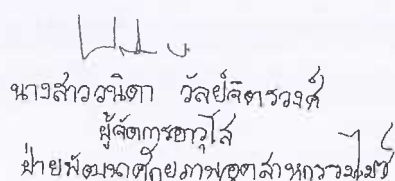 นางสาววนิดา วัลย์จิตรวงศ์
ผู้จัดการอาวุโส
ฝ่ายพัฒนาศักยภาพอุตสาหกรรมไมซ์